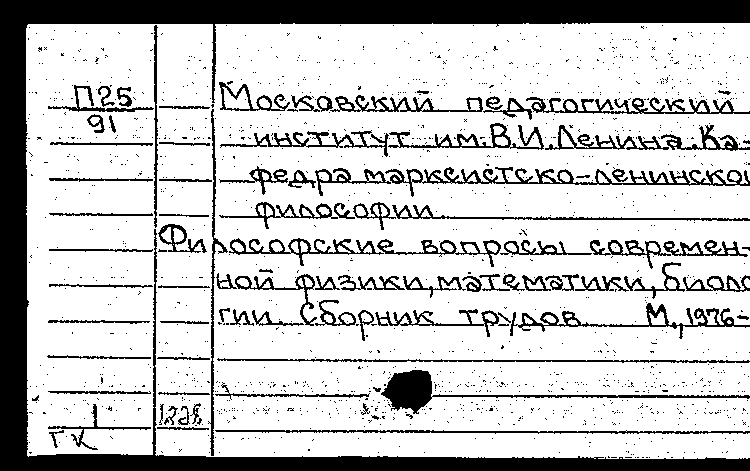 П25
91
Московский педагогический
институт им.В.И.Ленина.Ка-
федра марксистско-ленинской
философии.
Философские вопросы современ-
ной физики, математики, биоло
гии. Сборник трудов М., 1976-
1
ГК